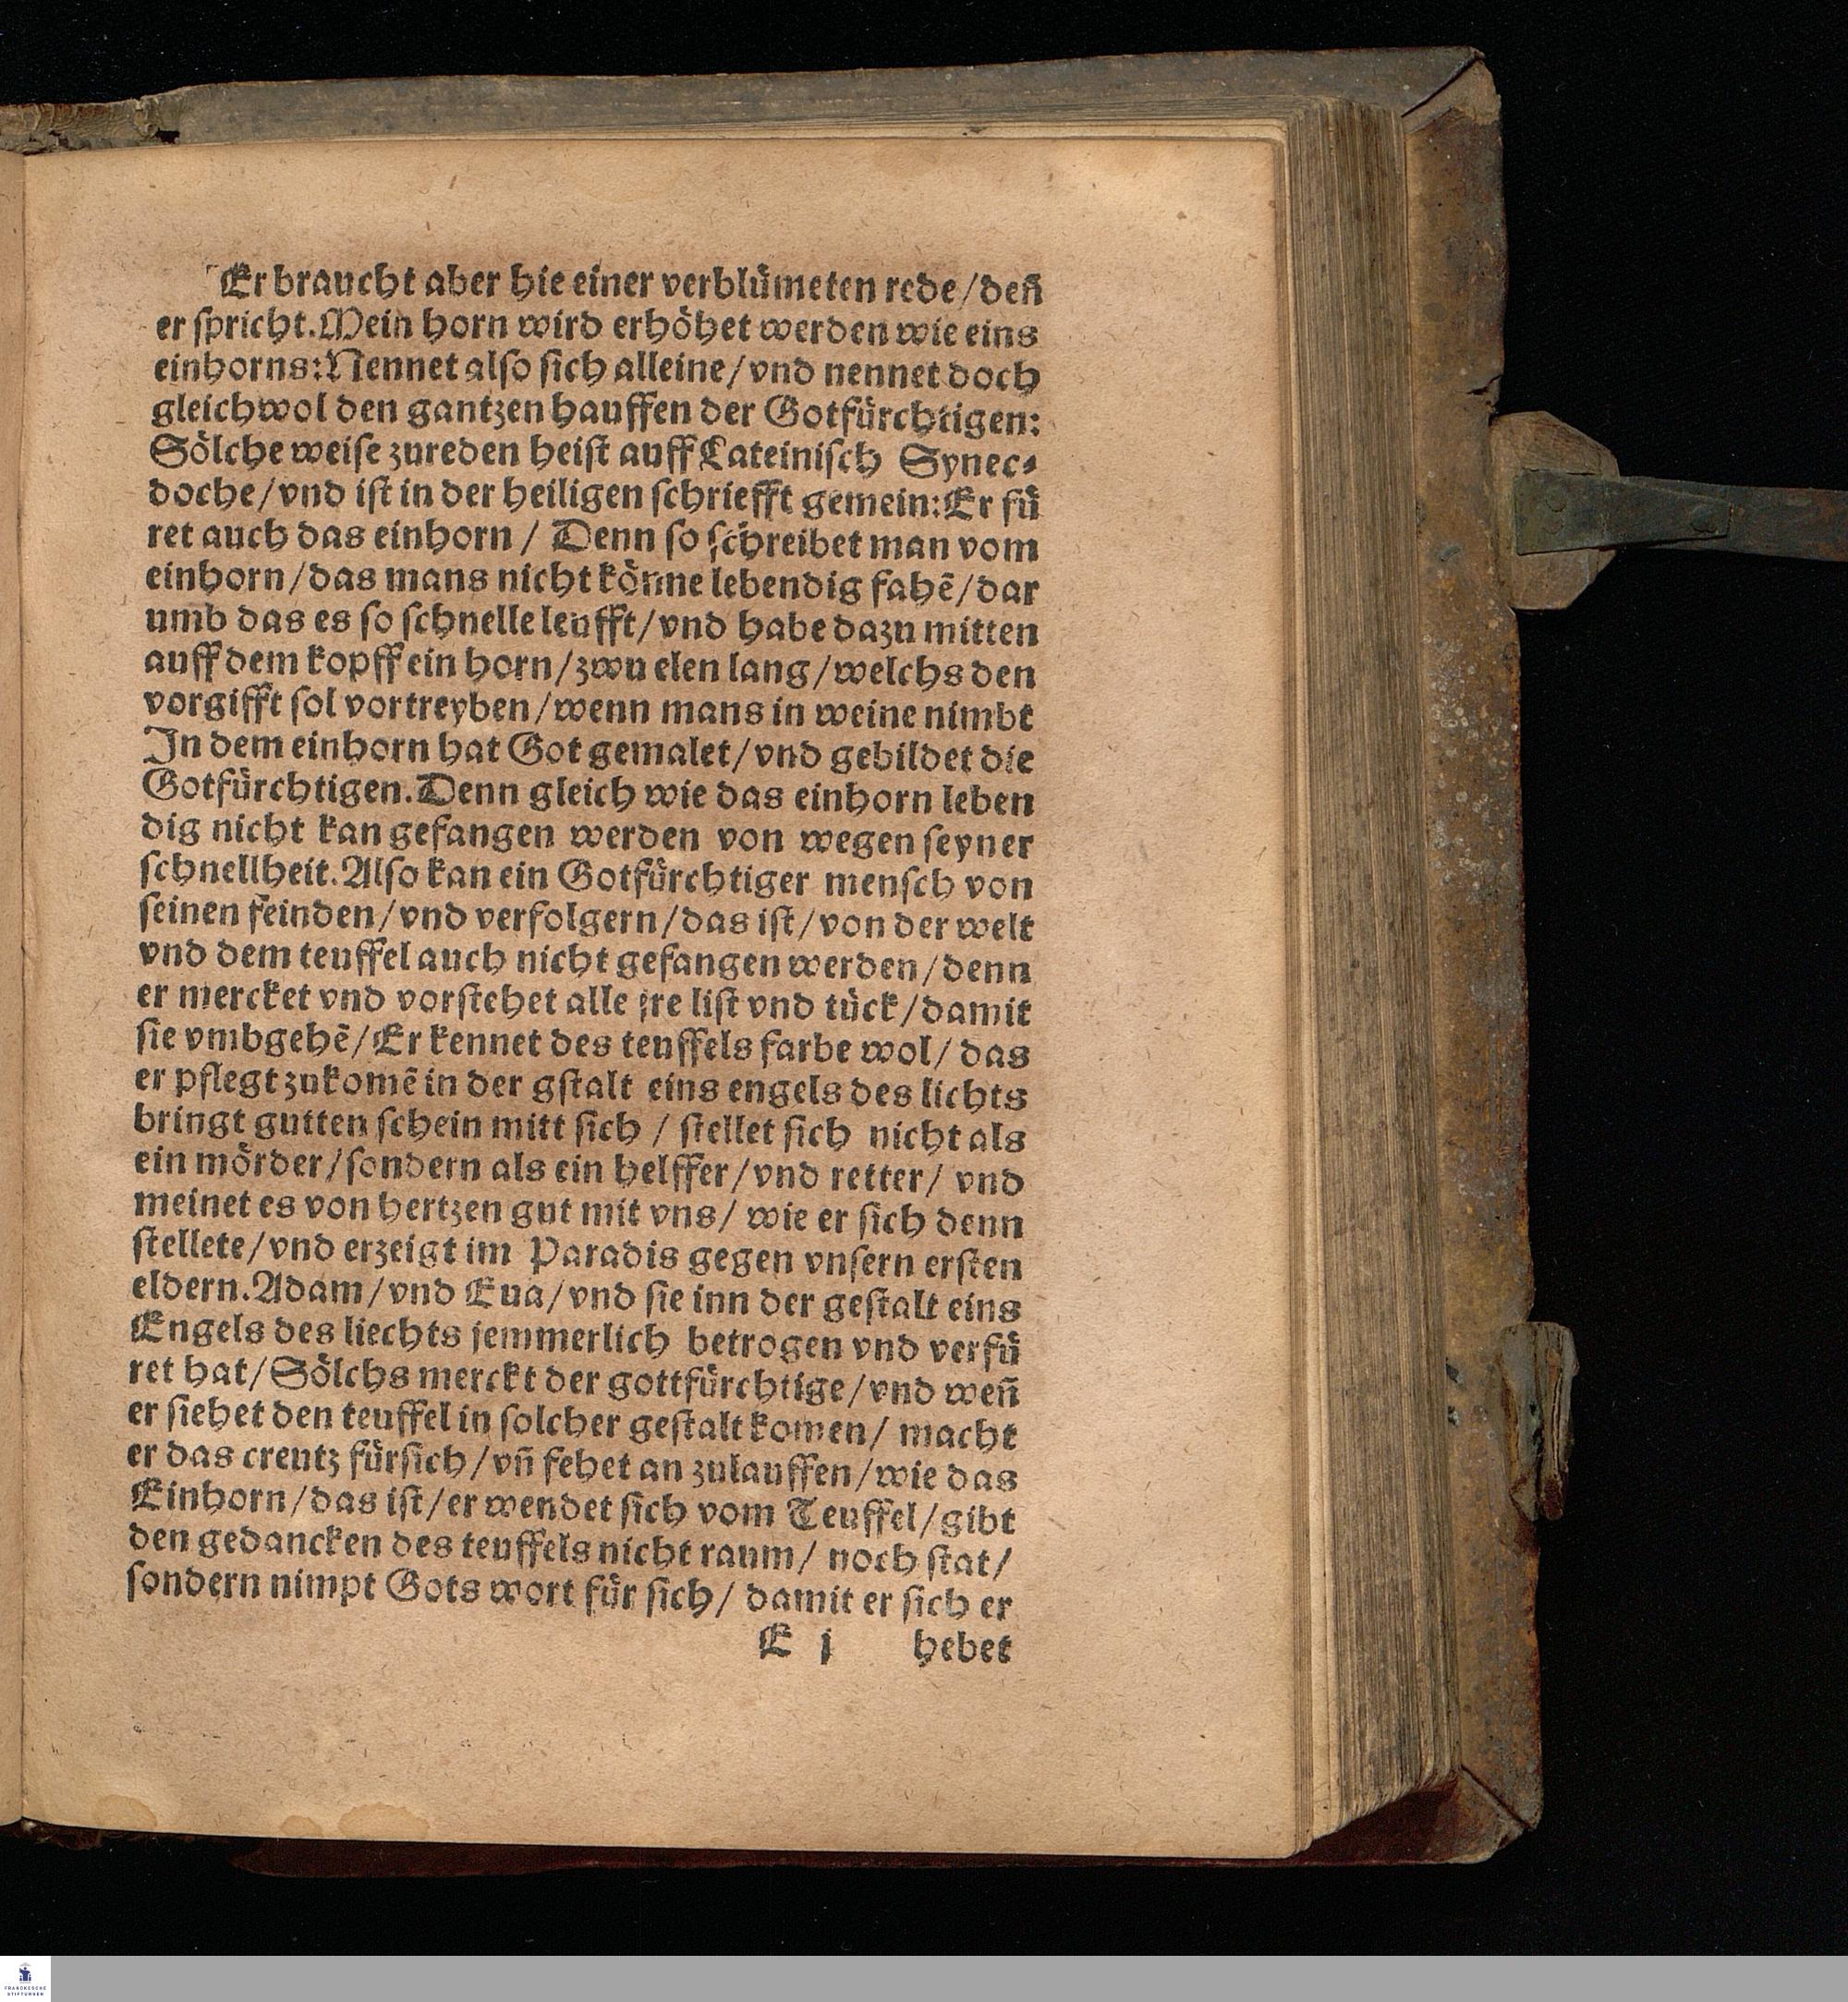 Er braucht aber hie einer verblümeten rede/ den̄
er spricht. Mein horn wird erhöhet werden wie eins
einhorns: Nennet also sich alleine/ vnd nennet doch
gleichwol den gantzen hauffen der Gotfürchtigen:
Sölche weise zureden heist auff Lateinisch Synec⸗
doche/ vnd ist in der heiligen schriefft gemein: Er fü
ret auch das einhorn / Denn so schreibet man vom
einhorn/ das mans nicht könne lebendig fahē/ dar
umb das es so schnelle leufft/ vnd habe dazu mitten
auff dem kopff ein horn/ zwu elen lang/ welchs den
vorgifft sol vortreyben/ wenn mans in weine nimbt
In dem einhorn hat Got gemalet/ vnd gebildet die
Gotfürchtigen. Denn gleich wie das einhorn leben
dig nicht kan gefangen werden von wegen seyner
schnellheit. Also kan ein Gotfürchtiger mensch von
seinen feinden/ vnd verfolgern/ das ist/ von der welt
vnd dem teuffel auch nicht gefangen werden/ denn
er mercket vnd vorstehet alle jre list vnd tück/ damit
sie vmbgehē/ Er kennet des teuffels farbe wol/ das
er pflegt zukomē in der gstalt eins engels des lichts
bringt gutten schein mitt sich / stellet sich nicht als
ein mörder/ sondern als ein helffer/ vnd retter/ vnd
meinet es von hertzen gut mit vns/ wie er sich denn
stellete/ vnd erzeigt im Paradis gegen vnsern ersten
eldern. Adam/ vnd Eua/ vnd sie inn der gestalt eins
Engels des liechts jemmerlich betrogen vnd verfü
ret hat/ Sölchs merckt der gottfürchtige/ vnd wen̄
er siehet den teuffel in solcher gestalt komen/ macht
er das creutz fürsich/ vn̄ fehet an zulauffen/ wie das
Einhorn/ das ist/ er wendet sich vom Teuffel/ gibt
den gedancken des teuffels nicht raum/ noch stat/
sondern nimpt Gots wort für sich/ damit er sich er
E j hebet
FRANCKESCHE
STIFTUNGEN